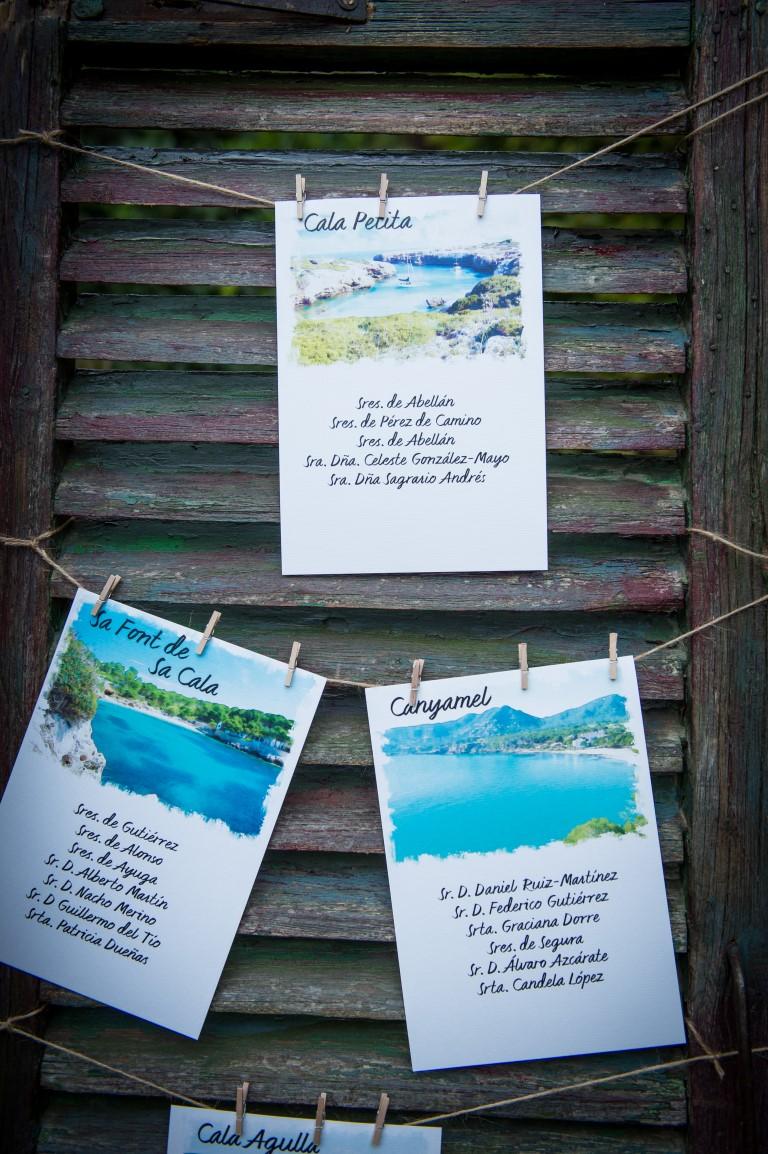 Cala Petita
Sres. de Abellán
Sres. de Pérez de Camino
Sres. de Abellán
Sra. Dña. Celeste González-Mayo
Sra. Dña Sagrario Andrés
Sa Font de
Sa Cala
Sres. de Gutiérrez
Sres. de Alonso
Sres. de Ayuga
Sr. D. Alberto Martín
Sr. D. Nacho Merino
Sr. D Guillermo del Tío
Srta. Patricia Dueñas
Canyamel
Sr. D. Daniel Ruiz-Martínez
Sr. D. Federico Gutiérrez
Srta. Graciana Dorre
Sres. de Segura
Sr. D. Álvaro Azcárate
Srta. Candela López
Cala Agulla